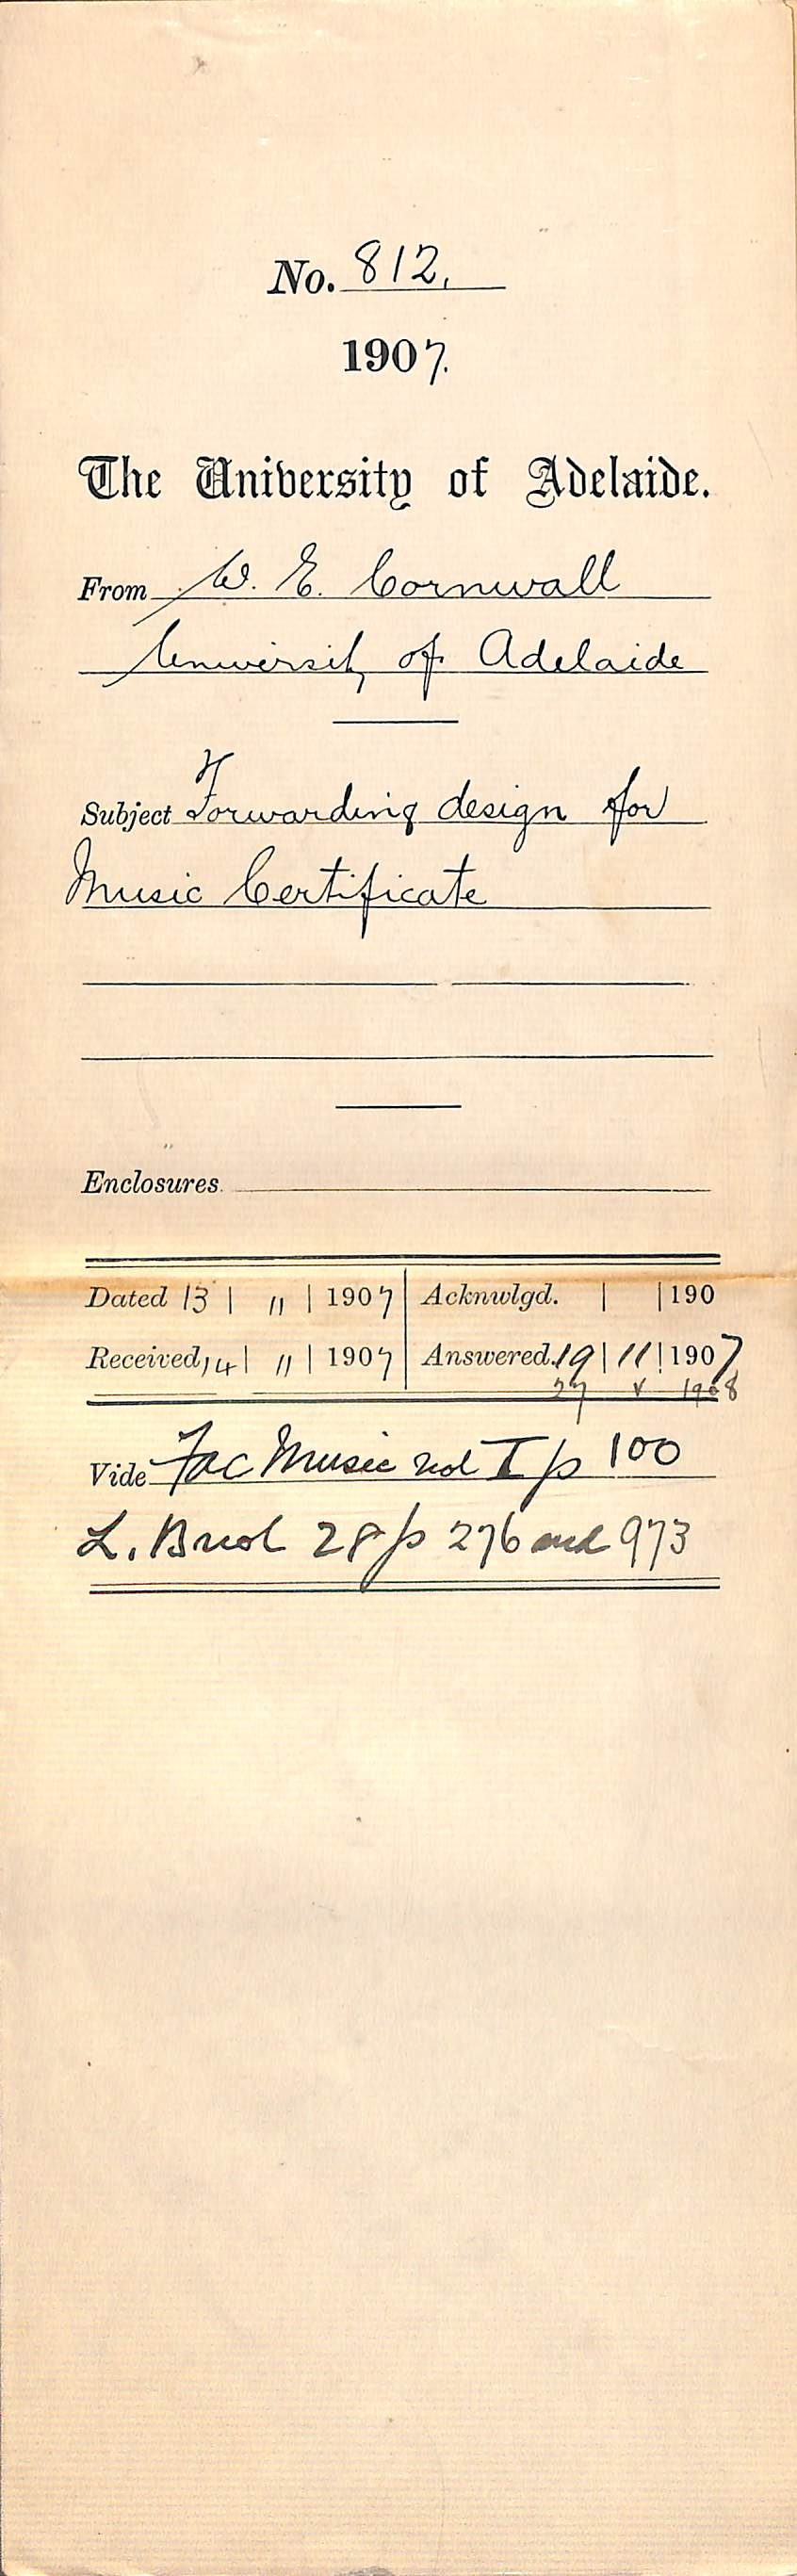 No. 812.
1907.
The University of Adelaide.
From W. E. Cornwall
University of Adelaide
Subject Forwarding design for
Music Certificate
Enclosures
Dated 13 | 11 | 1907 | Acknwlgd. | | 190
Received 14 | 11 | 1907 | Answered. 19 | 11 | 1907
27 V 1908
Vide Fac Music vol I p 100
L. B vol 28 p 276 and 973